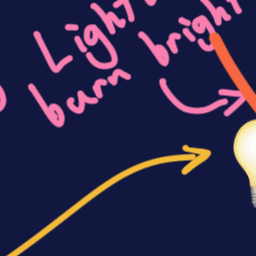 Light
burn bright